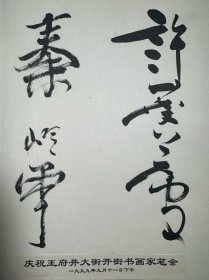 許麐廬
秦岭雲
庆祝王府井大街开街书画家笔会
一九九九年九月十一日下午